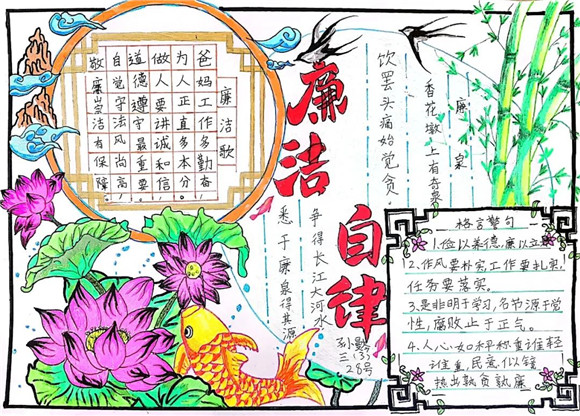 廉洁自律
廉洁歌
爸妈工作多勤奋
为人正直多本分
做人要讲诚和信
道德遵守最重要
自觉守法风尚高
敬廉洁有保障
廉泉
香花墩上有奇泉
饮罢头痛始觉贪
争得长江大河水
悉于廉泉得其源
28号
格言警句
1.俭以养德,廉以立
2.作风要朴实,工作要扎实,
任务要落实。
3.是非明于学习,名节源于党
性,腐败止于正气。
4.人心如秤称量谁轻
谁重,民意似镜
照出孰贪孰廉